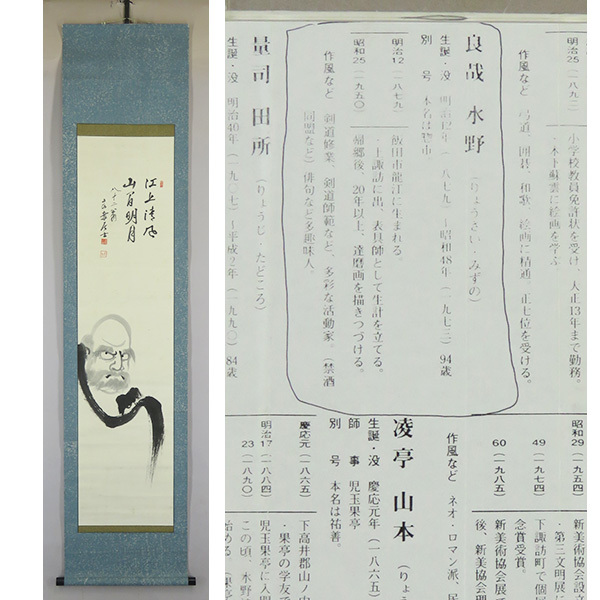 江上清風
山間明月
小学校教員免許状を受け、大正13年まで勤務。
明治25（一八九二
・木下蘇雲に絵画を学ぶ
作風など　弓道、囲碁、和歌、絵画に精通。正七位を受ける。
良哉　水野　（りょうさい・みずの）
生誕・没　明治12年（一八七九）～昭和48年（一九七三）94歳
別　号　本名は惣市
明治12（一八七九）　飯田市龍江に生まれる。
・上諏訪に出、表具師として生計を立てる。
昭和25（一九五〇）　帰郷後、20年以上、達磨画を描きつづける。
作風など　剣道修業、剣道師範など、多彩な活動家。（禁酒
同盟など）俳句など多趣味人。
量司　田所　（りょうじ・たどころ）
生誕・没　明治40年（一九〇七）～平成2年（一九九〇）84歳
昭和29（一九五四
新美術協会設立
・第三文明展に
49（一九七四）　下諏訪町で個展
念賞受賞。
60（一九八五）　新美術協会展で
後、新美術協会理
作風など　ネオ・ロマン派、民
凌亭　山本　（りょ
生誕・没　慶応元年（一八六五）
師　事　児玉果亭
別　号　本名は祐善。
慶応元（一八六五）　下高井郡山ノ内
・果亭の学友で
明治17（一八八四）　児玉果亭に入門
23（一八九〇）　この頃、水野
始める。（果亭